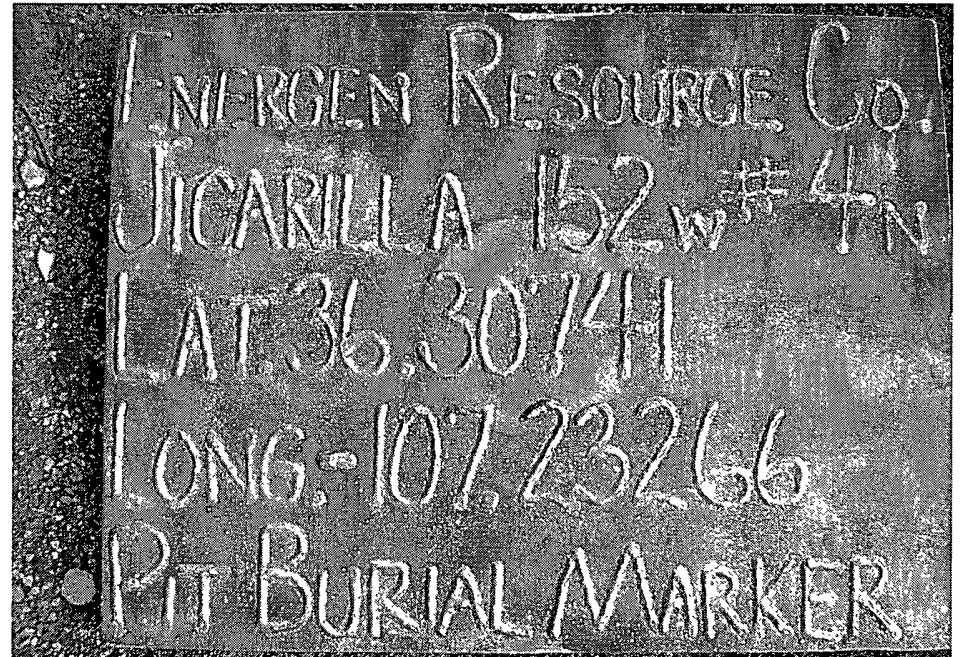 ENERGEN RESOURCE CO.
JICARILLA 152W #4N
LAT. 36.30741
LONG. -107.23266
PIT BURIAL MARKER